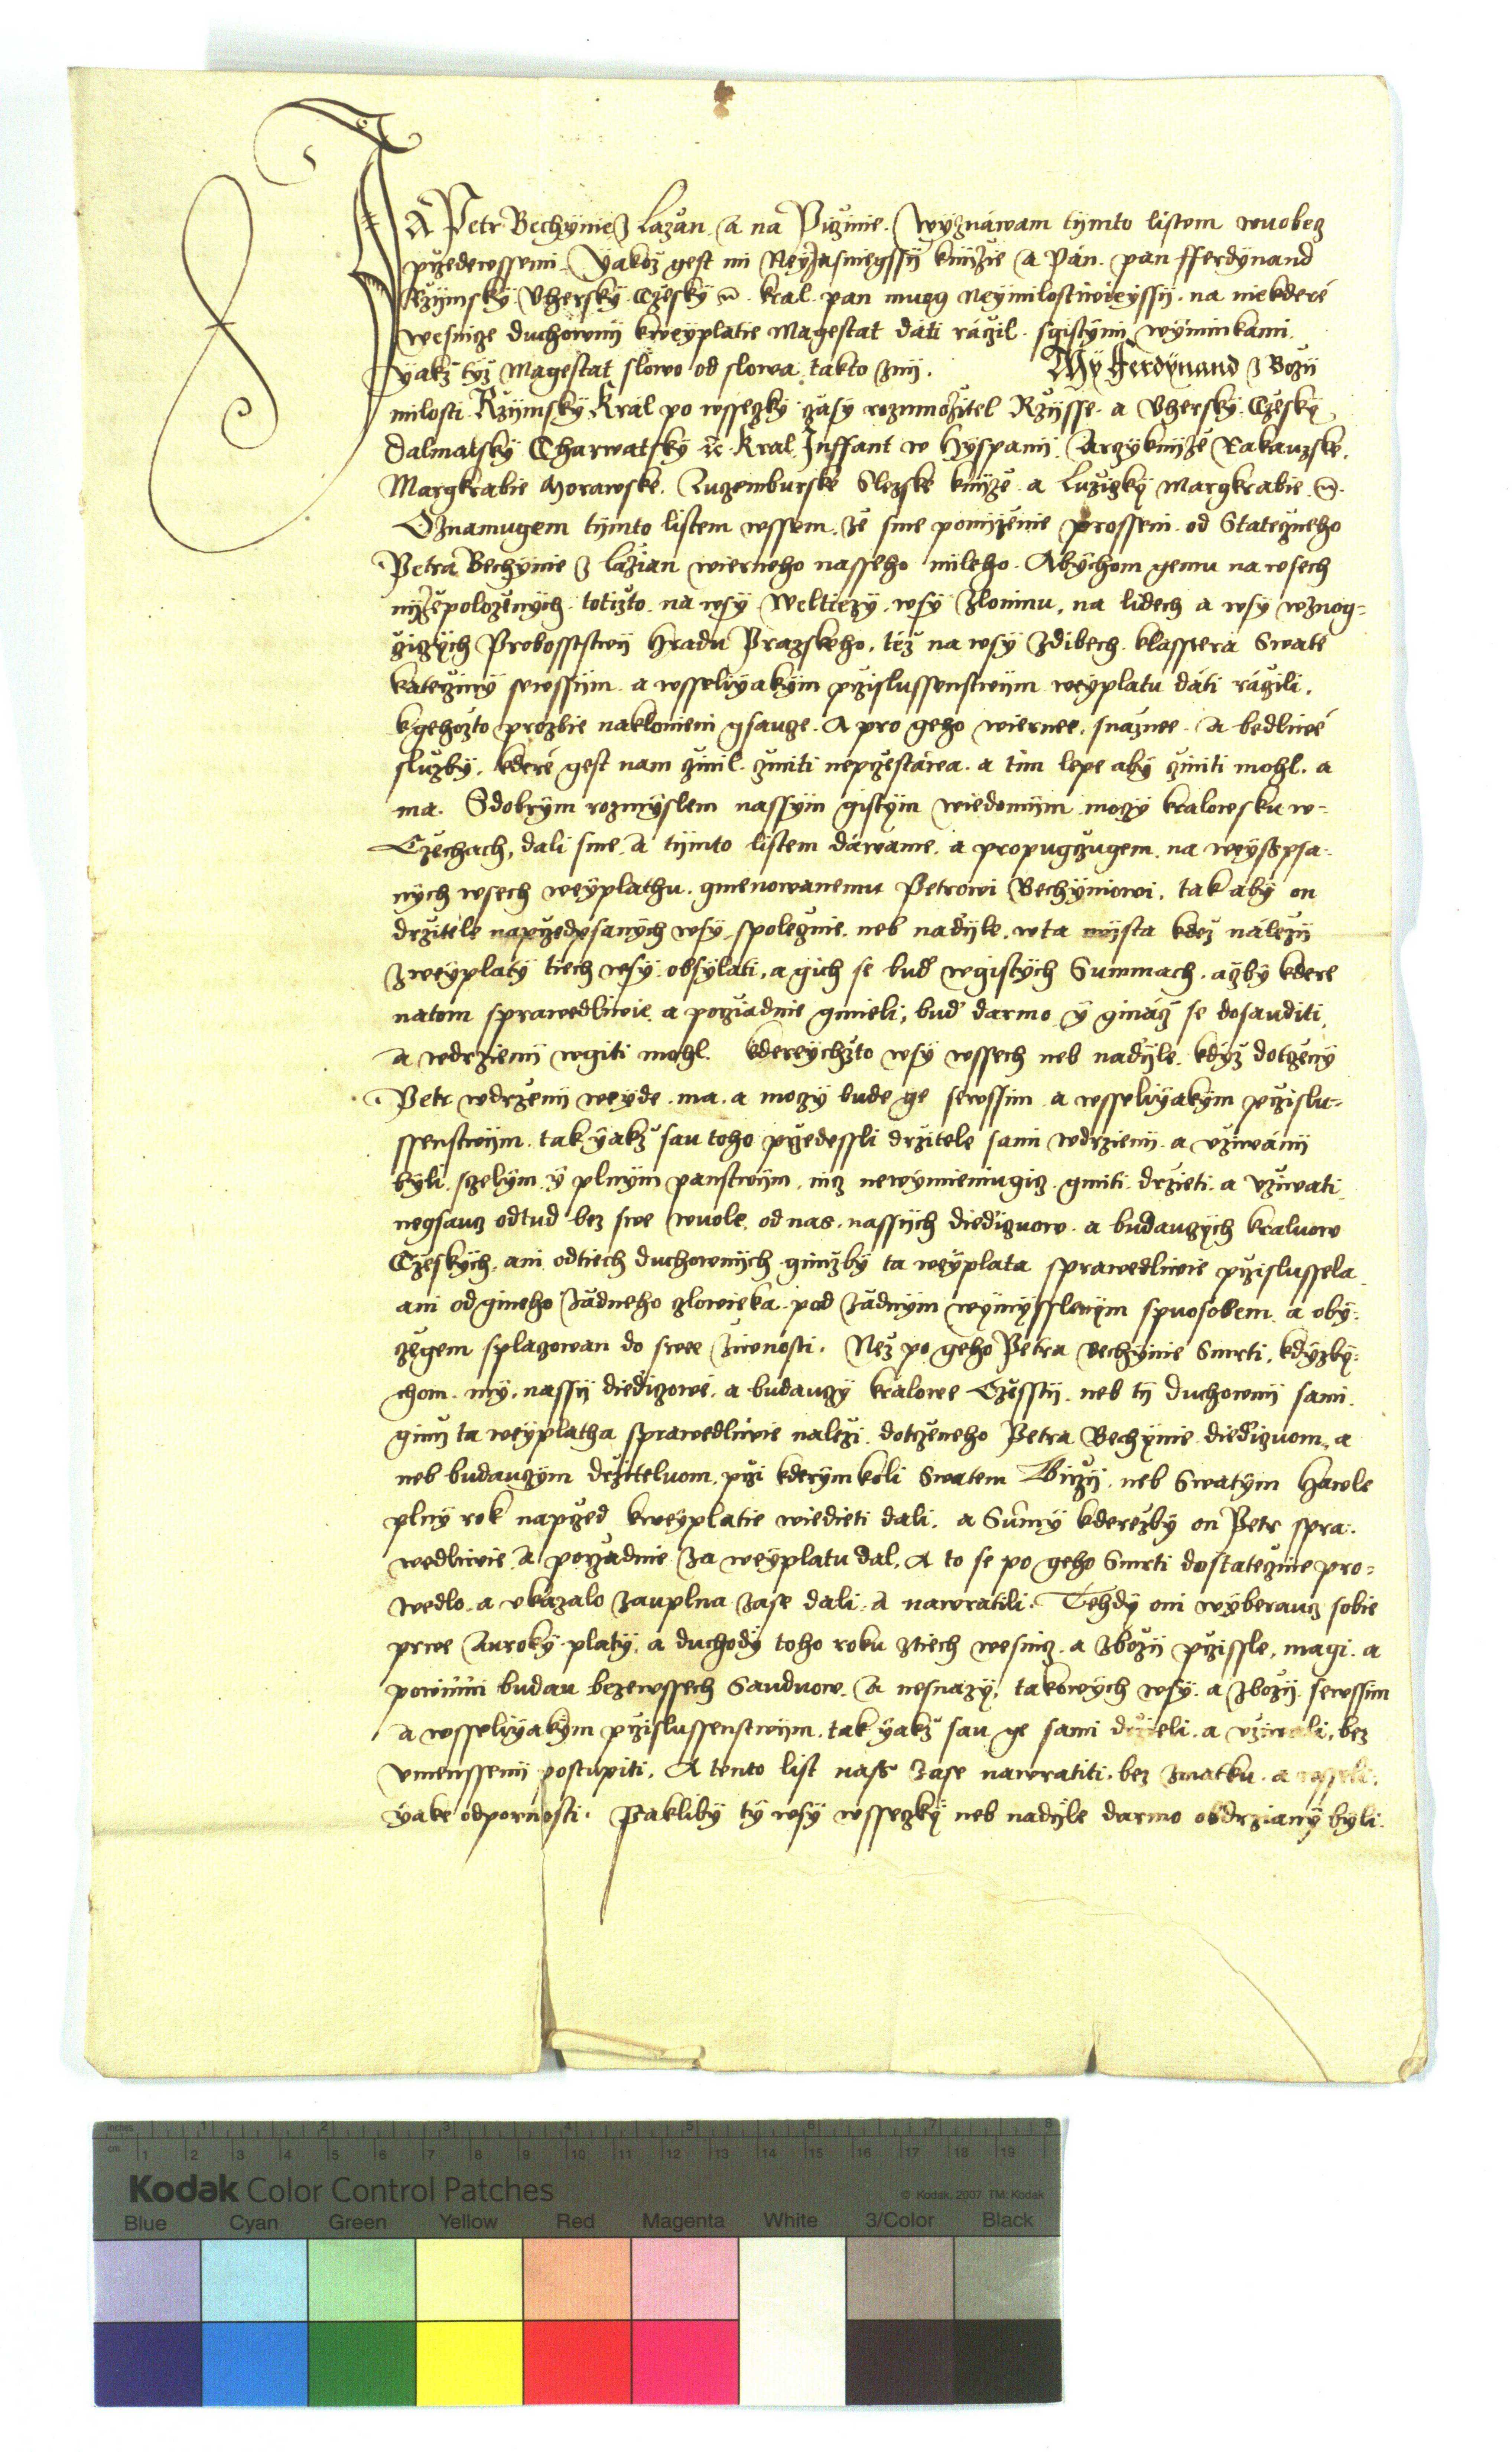 JA Petr Bechynie z Lazan A na Piczinie. Wyznáwam tijmto listem wuobecz
przedewssemi Yakoz gest mi Neyjasniegssij knijze A Pán. pan fferdynand
Rzijmsky Vhersky Czesky &c. kral. pan muog Neymilostiwieyssij. na niekderé
wesnicze duchownij kweyplatie Magestat dáti ráczil. sgistymi wýminkami
yakz tyz Magestat slowo od slowa takto znij. My Ferdynand z Bozij
milosti Rzijmsky Kral po wssechky czasy rozmnozitel Rzijsse. a Vhersky Czesky
Dalmatsky Charwatsky &c. Kral. Inffant w Hyspanij. Arczyknijze Rakauzske.
Margkrabie Morawske. Luczemburske Slezske knijze. a Luziczky Margkrabie &c.
Oznamugem tijmto listem wssem. ze sme ponijzenie prosseni. od Stateczneho
Petra Bechynie z Lazian wierneho nasseho mileho. Abychom gemu na wsech
nijzepolozenych. totizto na wsy Weltiezy. wsy Zloninu, na lidech a wsy wznog-
giczych Probosststwij Hradu Prazskeho, téz na wsy Zdibech klasstera Swate
Katerziny sewssijm a wsselijyakym przislussenstwijm weyplatu dáti ráczili.
kgehozto prozbie naklonieni gsaucze. A pro geho wiernee, snaznee. A bedliwé
sluzby. kderé gest nam czinil. cziniti neprzestáwa. a tim lepe aby cziniti mohl. a
ma. Sdobrym rozmyslem nassym gistym wiedomijm moczy kralowsku w-
Czechach, dali sme. A tijmto listem dáwame. a propugczugem. na weysspsa-
nych wsech weyplathu. gmenowanemu Petrowi Bechyniowi. tak aby on
drzitele naprzedpsanych wsy. spolecznie. neb nadijle. wta mijsta kdez nálezij
zweyplaty tiech wsy obsylati, a gich se bud wgistych Summach. aczby kdere
natom sprawedliwie a porziadnie gmieli, bud darmo y ginácz se dosauditi,
A wdrzenij wgiti mohl. Kdereychzto wsy wssech neb nadijle. kdyz dotczeny
Petr wdrzenij weyde. ma. a moczy bude ge sewssim a wsselijyakym przislu-
ssenstwijm. tak yakz sau toho przedessli drzitele sami wdrzienij. a vziwánij
byli. sczelym y plnym panstwijm. nicz newymieniugicz gmiti. drzieti. a vziwati.
negsaucz odtud bez swe wuole. od nas. nassijch diediczuow. a budauczych kraluow
Czeskych. ani odtiech duchownijch gimzby ta weyplata sprawedliwie przislussela
ani od gineho zadneho czlowieka. pod zadnym wymysslenym spuosobem. a oby-
czegem splaczowan do swee ziwnosti. Nez po geho Petra Bechynie Smrti, kdyzby-
chom. my. nassij diediczowé. a budauczy kralowe Czesstij. neb tij duchownij sami.
gimz ta weyplatha sprawedliwie nalezi. dotczeneho Petra Bechynie diediczuom. a
neb budauczym drziteluom. przi kderymkoli Swatem Girzij. neb Swatym Hawle
plny rok naprzed kweyplatie wiedieti dali. a Sumy kderezby on Petr spra-
wedliwie. A porzadnie za weyplatu dal, A to se po geho Smrti dostatecznie pro-
wedlo. a vkazalo zauplna zase dali. A nawratili. Tehdy oni wyberaucz sobie
prwe Auroky. platy, a duchody toho roku ztiech wesnicz. a zbozij przissle, magi. a
powinni budau bezewssech Sauduow. A nesnazy, takowych wsy. a zbozij. sewssim
a wsselijyakym przislussenstwijm. tak yakz sau ge sami drzieli. a vziwali. bez
vmenssenij postupiti. A tento list nass zase nawratiti. bez zmatku. a wsseli-
yake odpornosti. Pakliby ty wsy wssechky neb nadijle darmo obdrziany byli.
inches 1 2 3 4 5 6 7 8
cm 1 2 3 4 5 6 7 8 9 10 11 12 13 14 15 16 17 18 19
Kodak Color Control Patches © Kodak, 2007 TM: Kodak
Blue Cyan Green Yellow Red Magenta White 3/Color Black